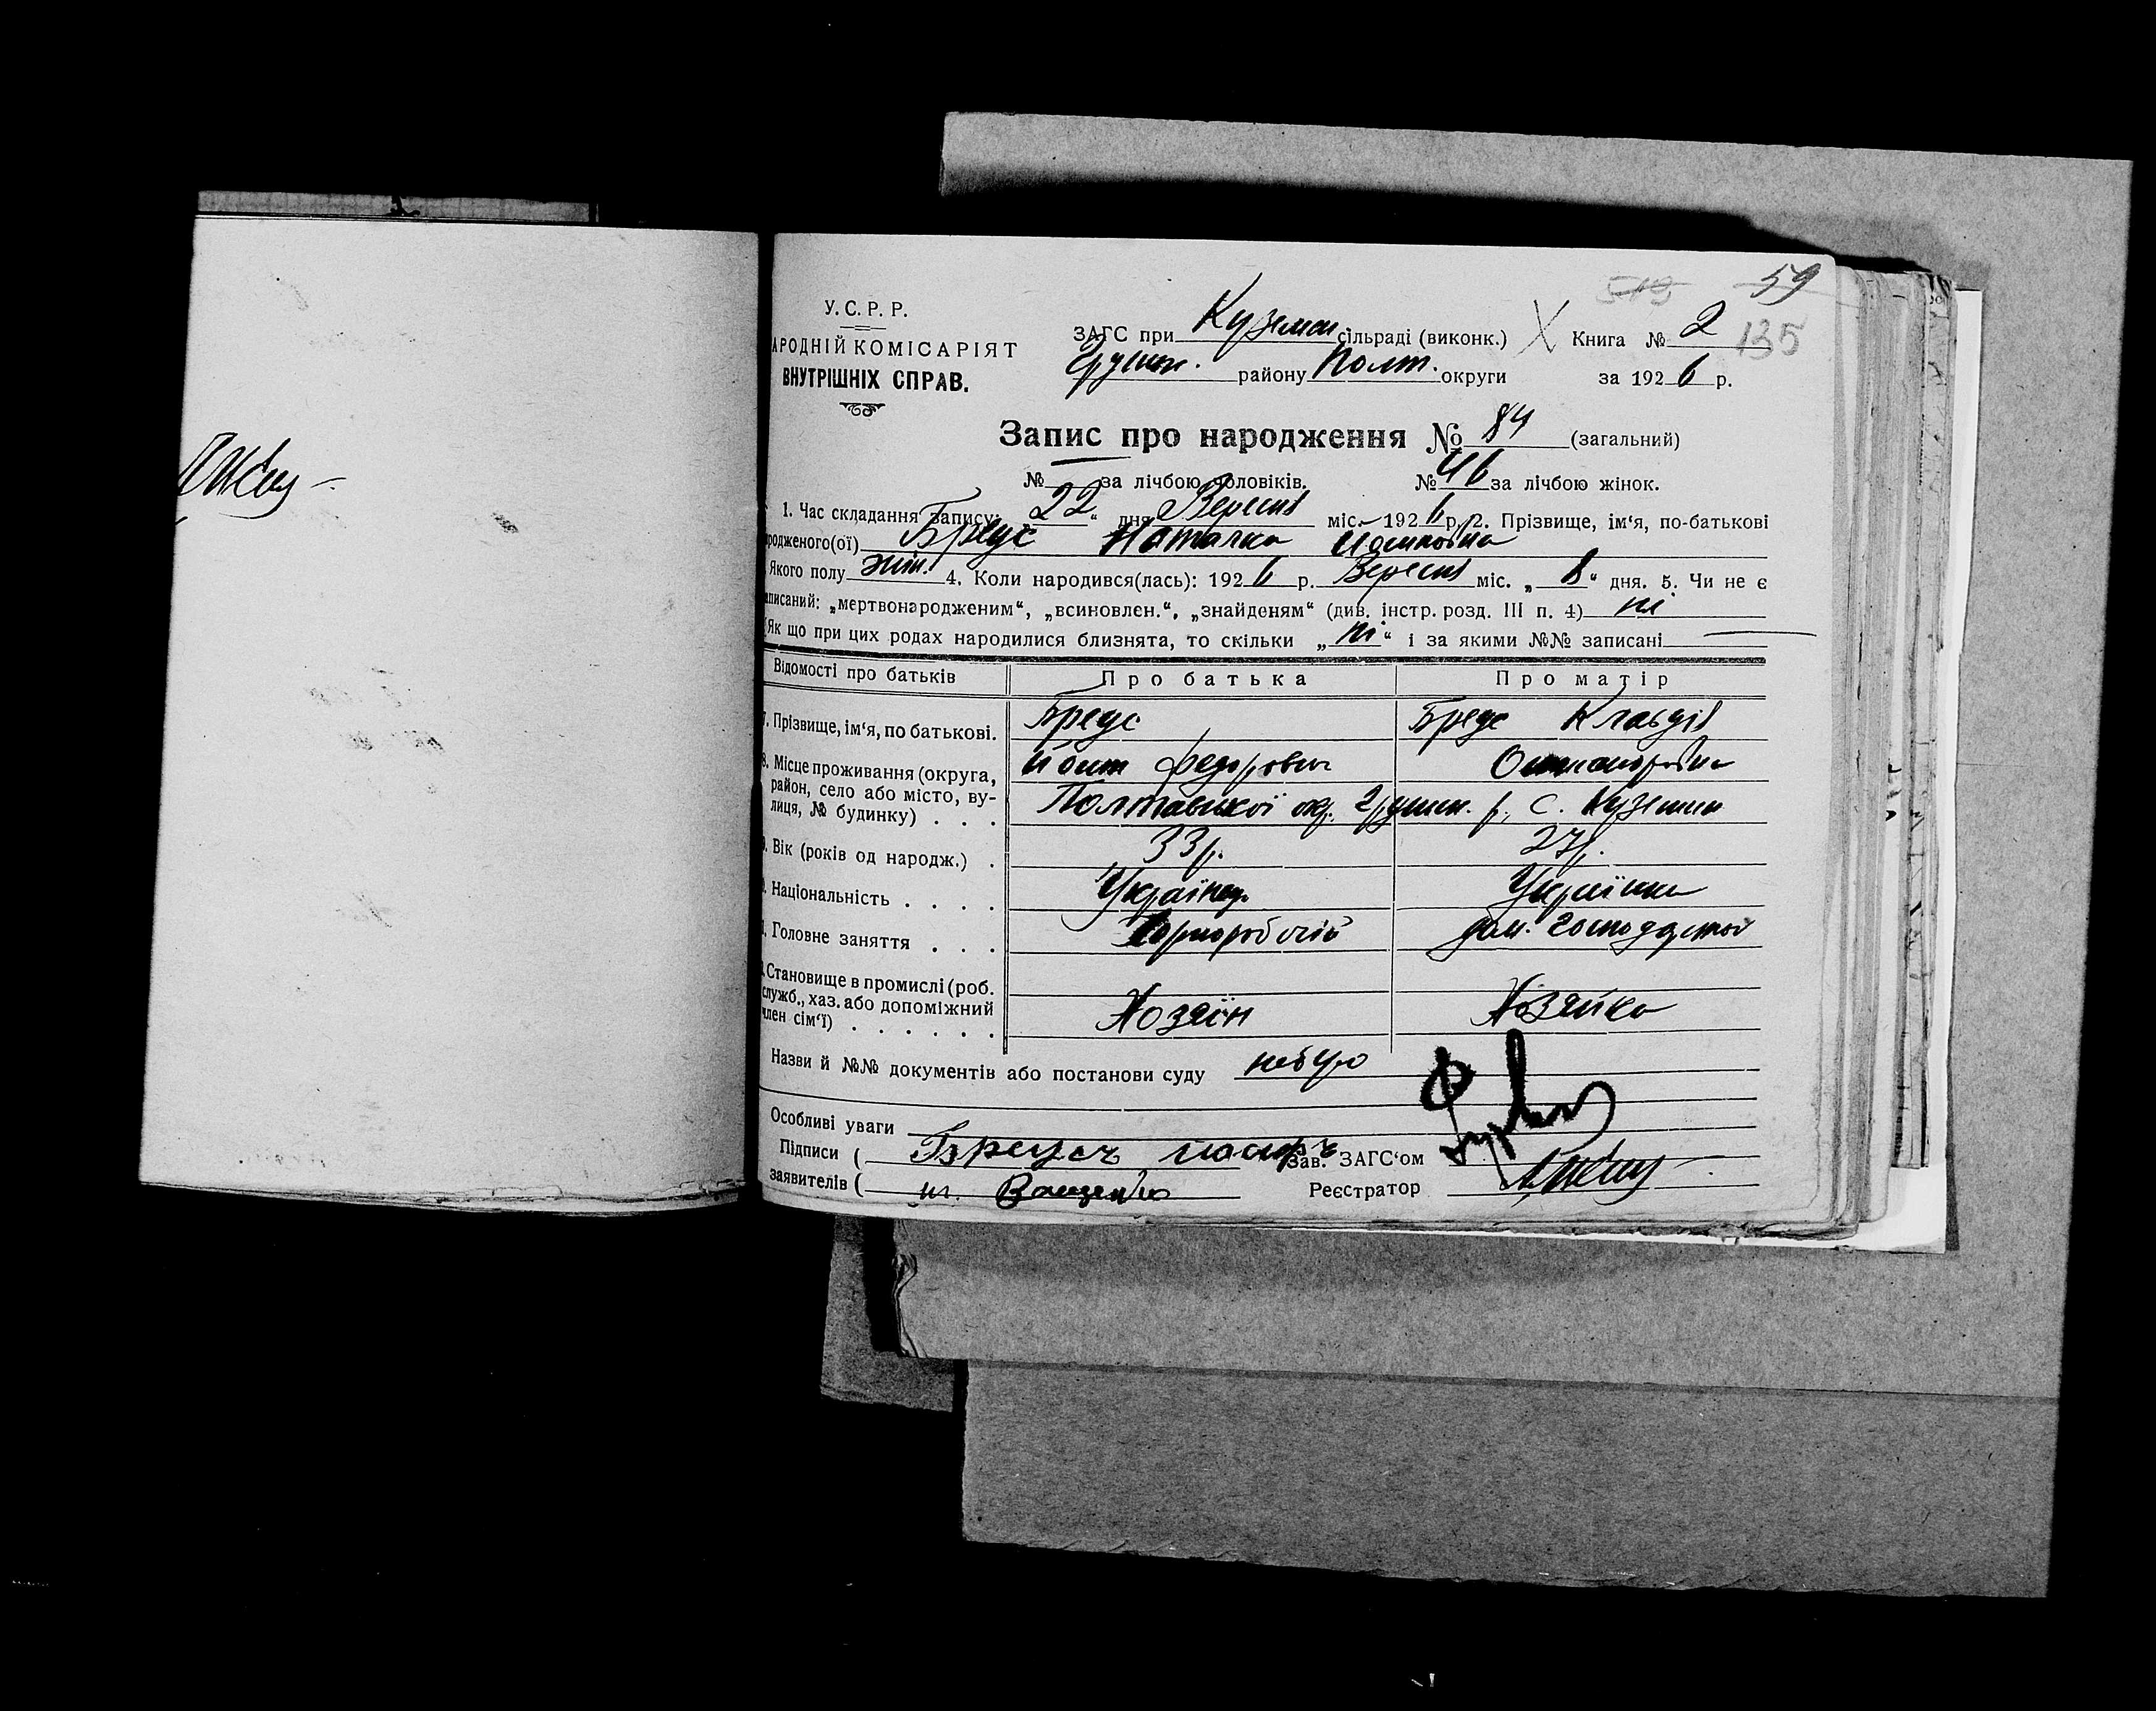 519 59
У. С. Р. Р.
АРОДНІЙ КОМІСАРІЯТ
ВНУТРІШНІХ СПРАВ.
ЗАГС при Куземен. сільраді (виконк.) Х Книга № 2 135
Грунск. району Полт. округи за 1926 р.
Запис про народження № 84 (загальний)
№ за лічбою чоловіків. № 46 за лічбою жінок.
1. Час складання запису: „22“ дня Вересня міс. 1926 р. 2. Прізвище, ім‘я, по-батькові
родженого(ої) Бреус Наталка
Якого полу жін. 4. Коли народився(лась): 1926 р. Вересня міс. „8“ дня. 5. Чи не є
аписаний: „мертвонародженим“, „всиновлен.“, „знайденям“ (див. інстр. розд. III п. 4) ні
Як що при цих родах народилися близнята, то скільки „ні“ і за якими №№ записані
Відомості про батьків Про батька Про матір
7. Прізвище, ім‘я, по батькові. Бреус Бреус Клавдія
Йосип Федорович
8. Місце проживання (округа, район, село або місто, вулиця, № будинку) . . . Полтавської окр. р. с. Куземин
9. Вік (років од народж.) . 33 р. 27 р.
Національність . . . . Українец. Українка
Головне заняття . . . Чорноробочій дом. господарство
Становище в промислі (роб.
служб., хаз. або допоміжний
член сім‘ї) . . . . . . Хозяїн Хозяйка
Назви й №№ документів або постанови суду небуло
Особливі уваги
Підписи ( Бреусъ Иосифъ Зав. ЗАГС‘ом
заявителів ( Ващенко Реєстратор